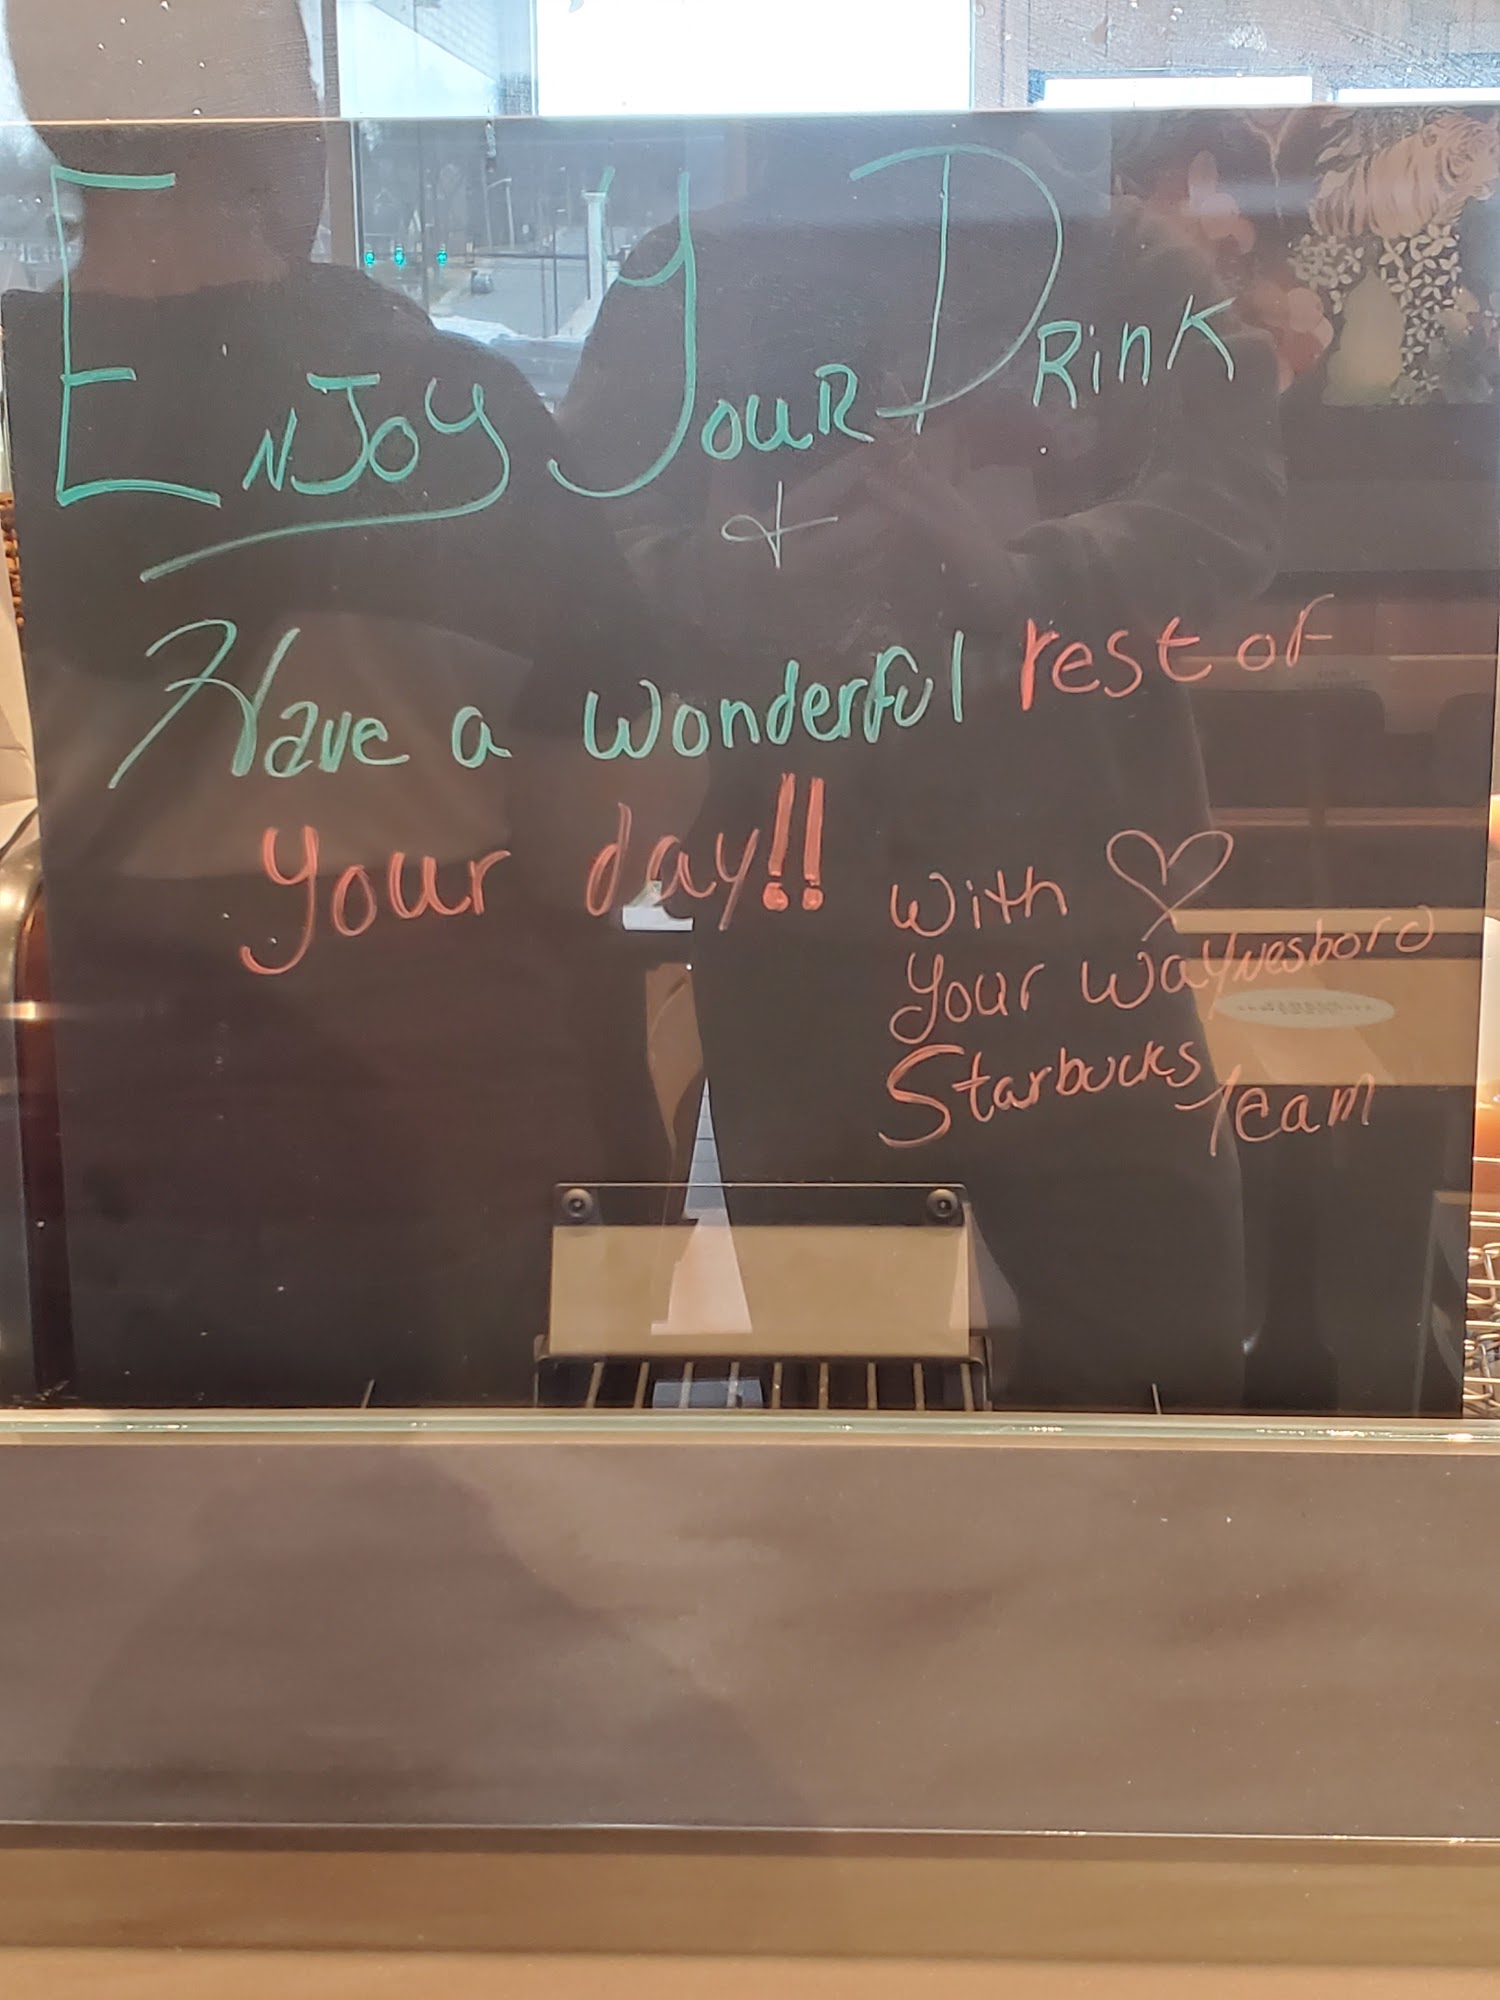 Enjoy Your Drink
+
Have a wonderful rest of
your day!!
With ♡
Your Waynesboro
Starbucks Team